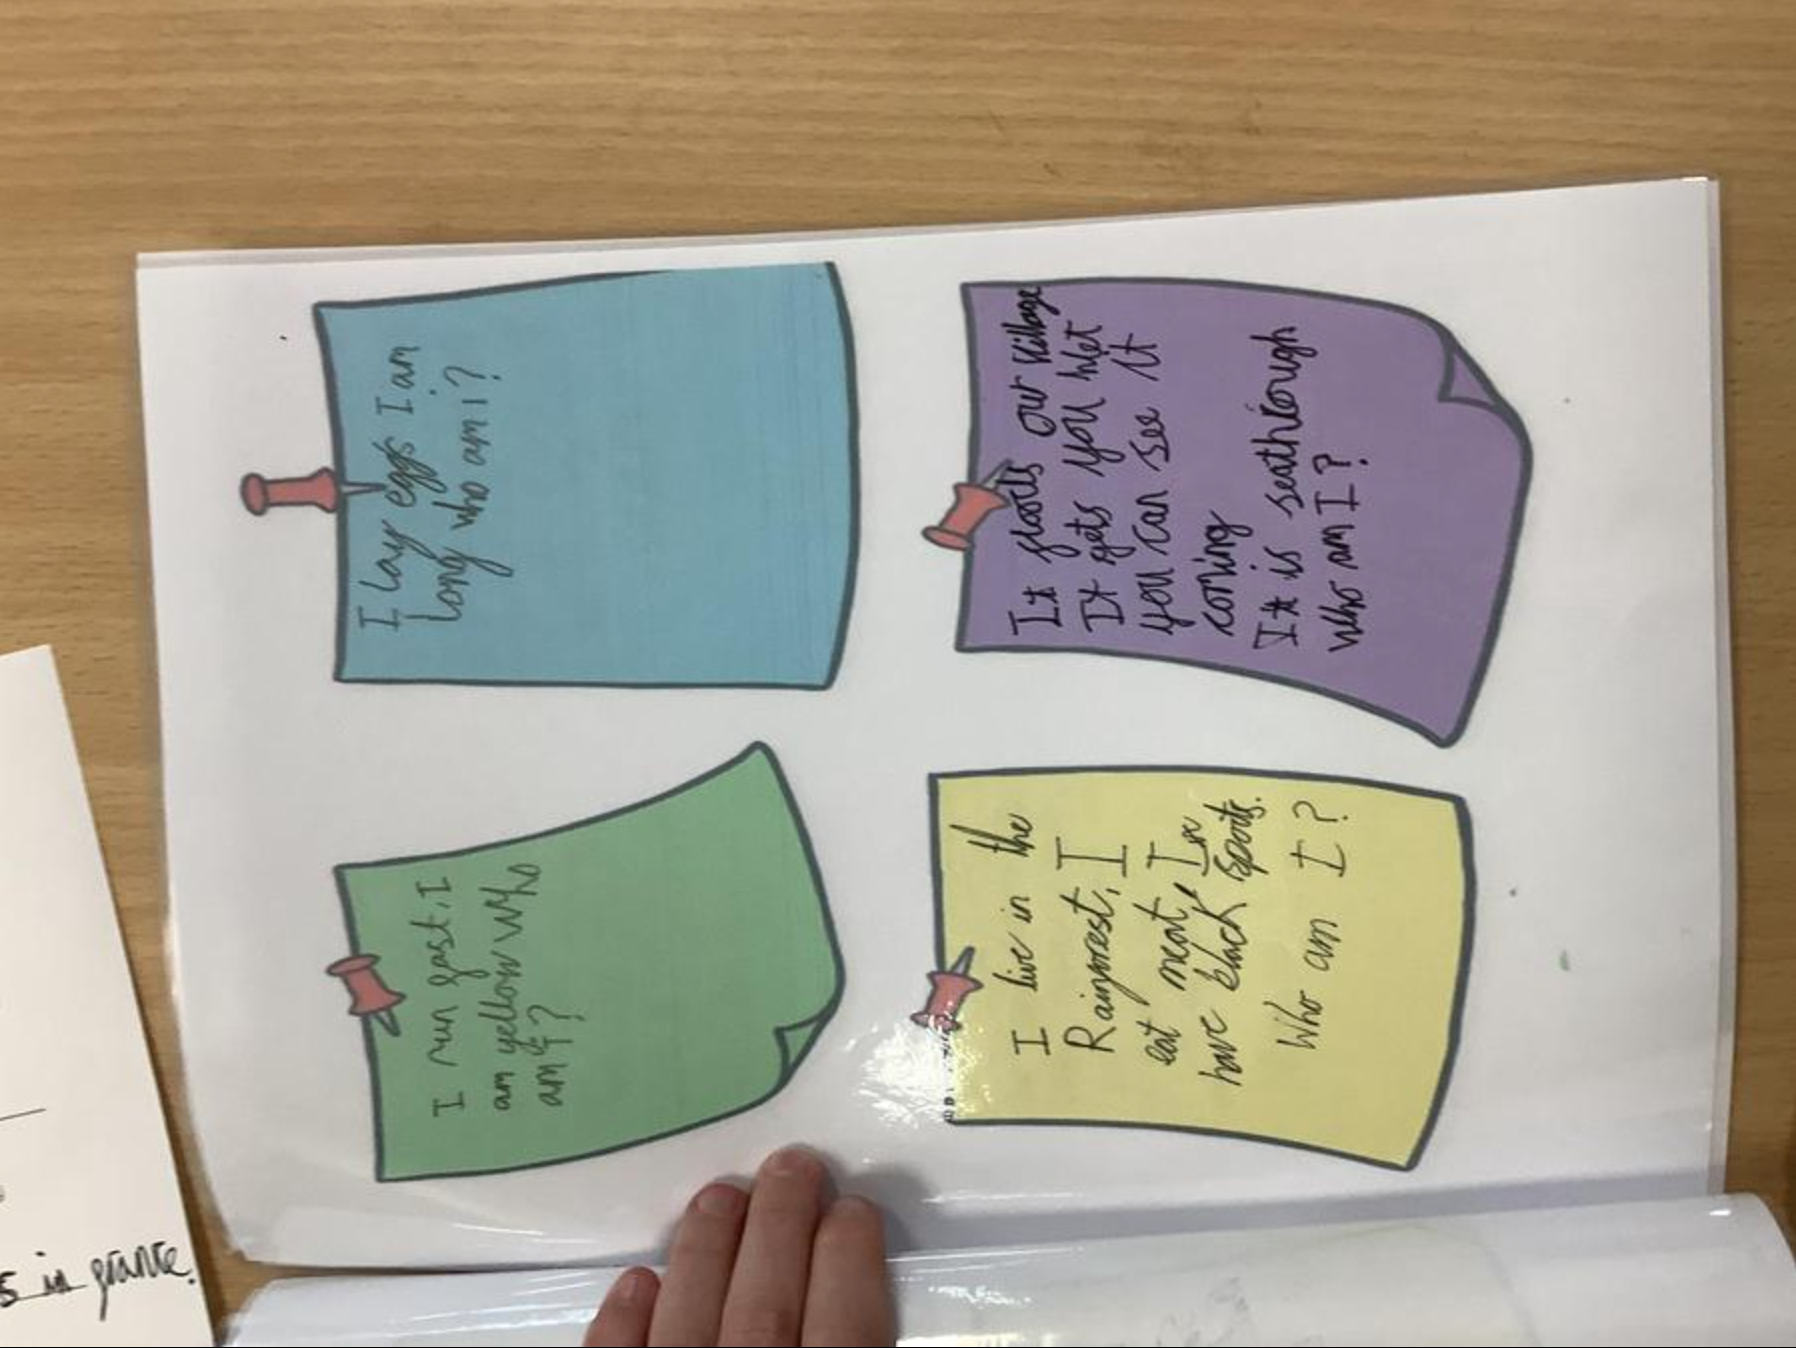 I run fast, I
am yellow who
am I?
I lay eggs I am
long who am i?
I live in the
Rainforest, I
eat meat, I
have black spots.
Who am I?
It floods our village
It gets you wet
you can see it
coming
It is seathrough
who am I?
in